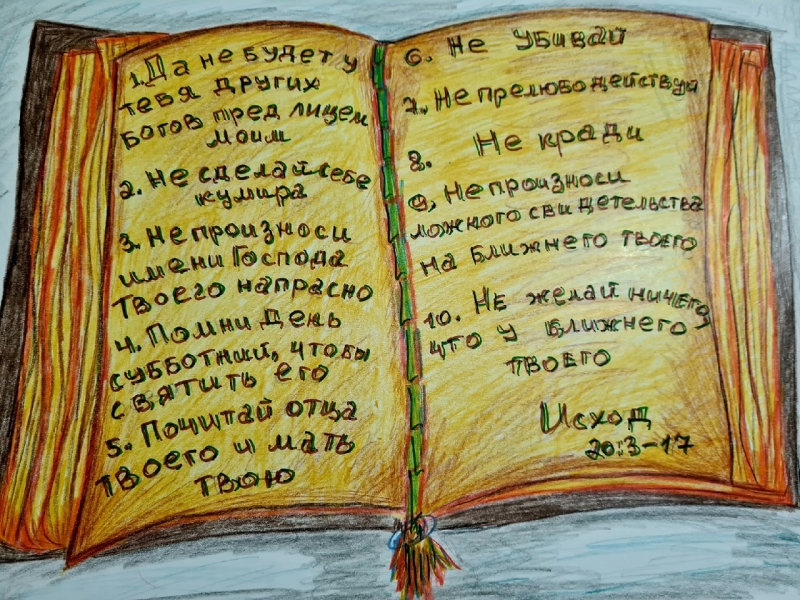 1. Да не будет у
тебя других
богов пред лицем
моим
2. Не сделай себе
кумира
3. Не произноси
имени Господа
Твоего напрасно
4. Помни День
субботний, чтобы
святить его
5. Почитай отца
твоего и мать
твою
6. Не Убивай
7. Не прелюбодействуй
8. Не кради
9, Не произноси
ложного свидетельства
на ближнего твоего
10. Не желай ничего,
что у ближнего
твоего
Исход
20:3-17